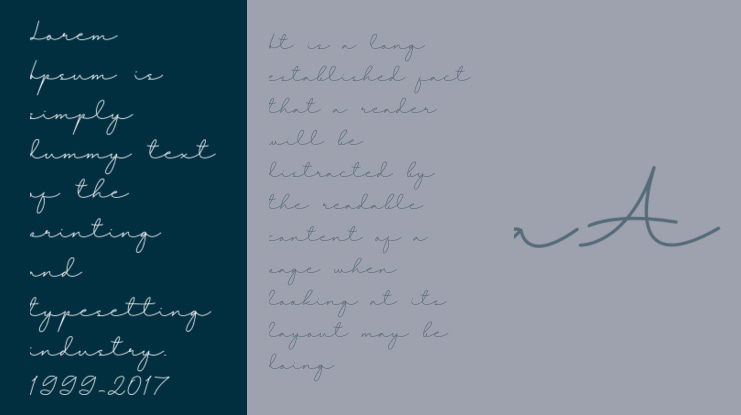 Lorem
Ipsum is
simply
dummy text
of the
printing
and
typesetting
industry.
1999-2017
It is a long
established fact
that a reader
will be
distracted by
the readable
content of a
page when
looking at its
layout may be
doing
a A